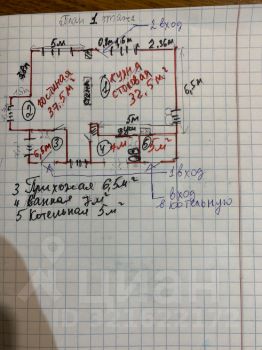 План 1 этажа
2 вход
5 м
0,9м
1,6м
2,36м
2
гостиная
37,5 м²
1
кухня
столовая
32,5 м²
6,5м
5м
6,5м²
3
4
7м²
5
5м²
1 вход
вход
в котельную
3 Прихожая 6,5м²
4 Ванная 7м²
5 Котельная 5 м²
циан